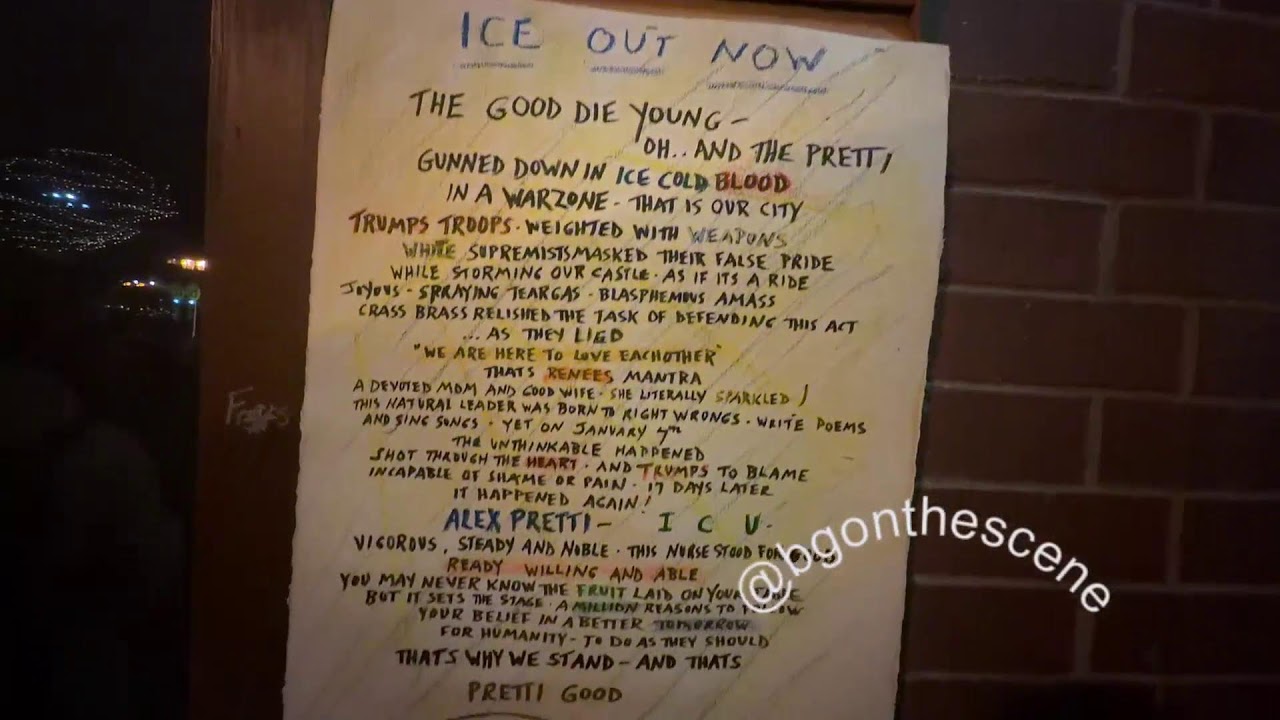 ICE OUT NOW
THE GOOD DIE YOUNG -
OH.. AND THE PRETTI
GUNNED DOWN IN ICE COLD BLOOD
IN A WARZONE - THAT IS OUR CITY
TRUMPS TROOPS - WEIGHTED WITH WEAPONS
WHITE SUPREMISTS MASKED THEIR FALSE PRIDE
WHILE STORMING OUR CASTLE - AS IF ITS A RIDE
JOYOUS - SPRAYING TEARGAS - BLASPHEMOUS AMASS
CRASS BRASS RELISHED THE TASK OF DEFENDING THIS ACT
... AS THEY LIED
"WE ARE HERE TO LOVE EACHOTHER"
THATS RENEES MANTRA
A DEVOTED MOM AND GOOD WIFE - SHE LITERALLY SPARKLED!
THIS NATURAL LEADER WAS BORN TO RIGHT WRONGS - WRITE POEMS
AND SING SONGS - YET ON JANUARY 7TH
THE UNTHINKABLE HAPPENED
SHOT THROUGH THE HEART - AND TRUMPS TO BLAME
INCAPABLE OF SHAME OR PAIN - 17 DAYS LATER
IT HAPPENED AGAIN!
ALEX PRETTI - I C U.
VIGOROUS, STEADY AND NOBLE - THIS NURSE STOOD FOR GOOD
READY WILLING AND ABLE
YOU MAY NEVER KNOW THE FRUIT LAID ON YOUR TABLE
BUT IT SETS THE STAGE - A MILLION REASONS TO FOLLOW
YOUR BELIEF IN A BETTER TOMORROW
FOR HUMANITY - TO DO AS THEY SHOULD
THATS WHY WE STAND - AND THATS
PRETTI GOOD
@bgonthescene